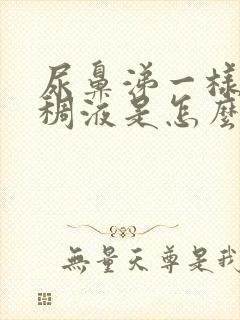 尿鼻涕一樣
稠液是怎麼
無量天尊是我